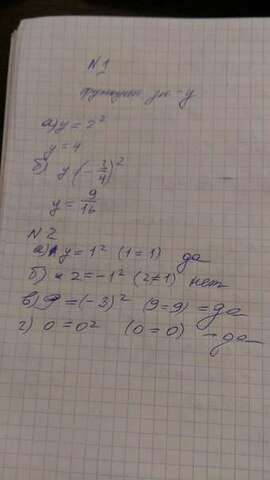 N1
функция зн - у
а) у = 2²
у = 4
б) у (-3/4)²
у = 9/16
N2
а) у = 1² (1 = 1) да
б) 2 = -1² (2 ≠ 1) нет
в) 9 = (-3)² (9 = 9) = да
г) 0 = 0² (0 = 0) - да